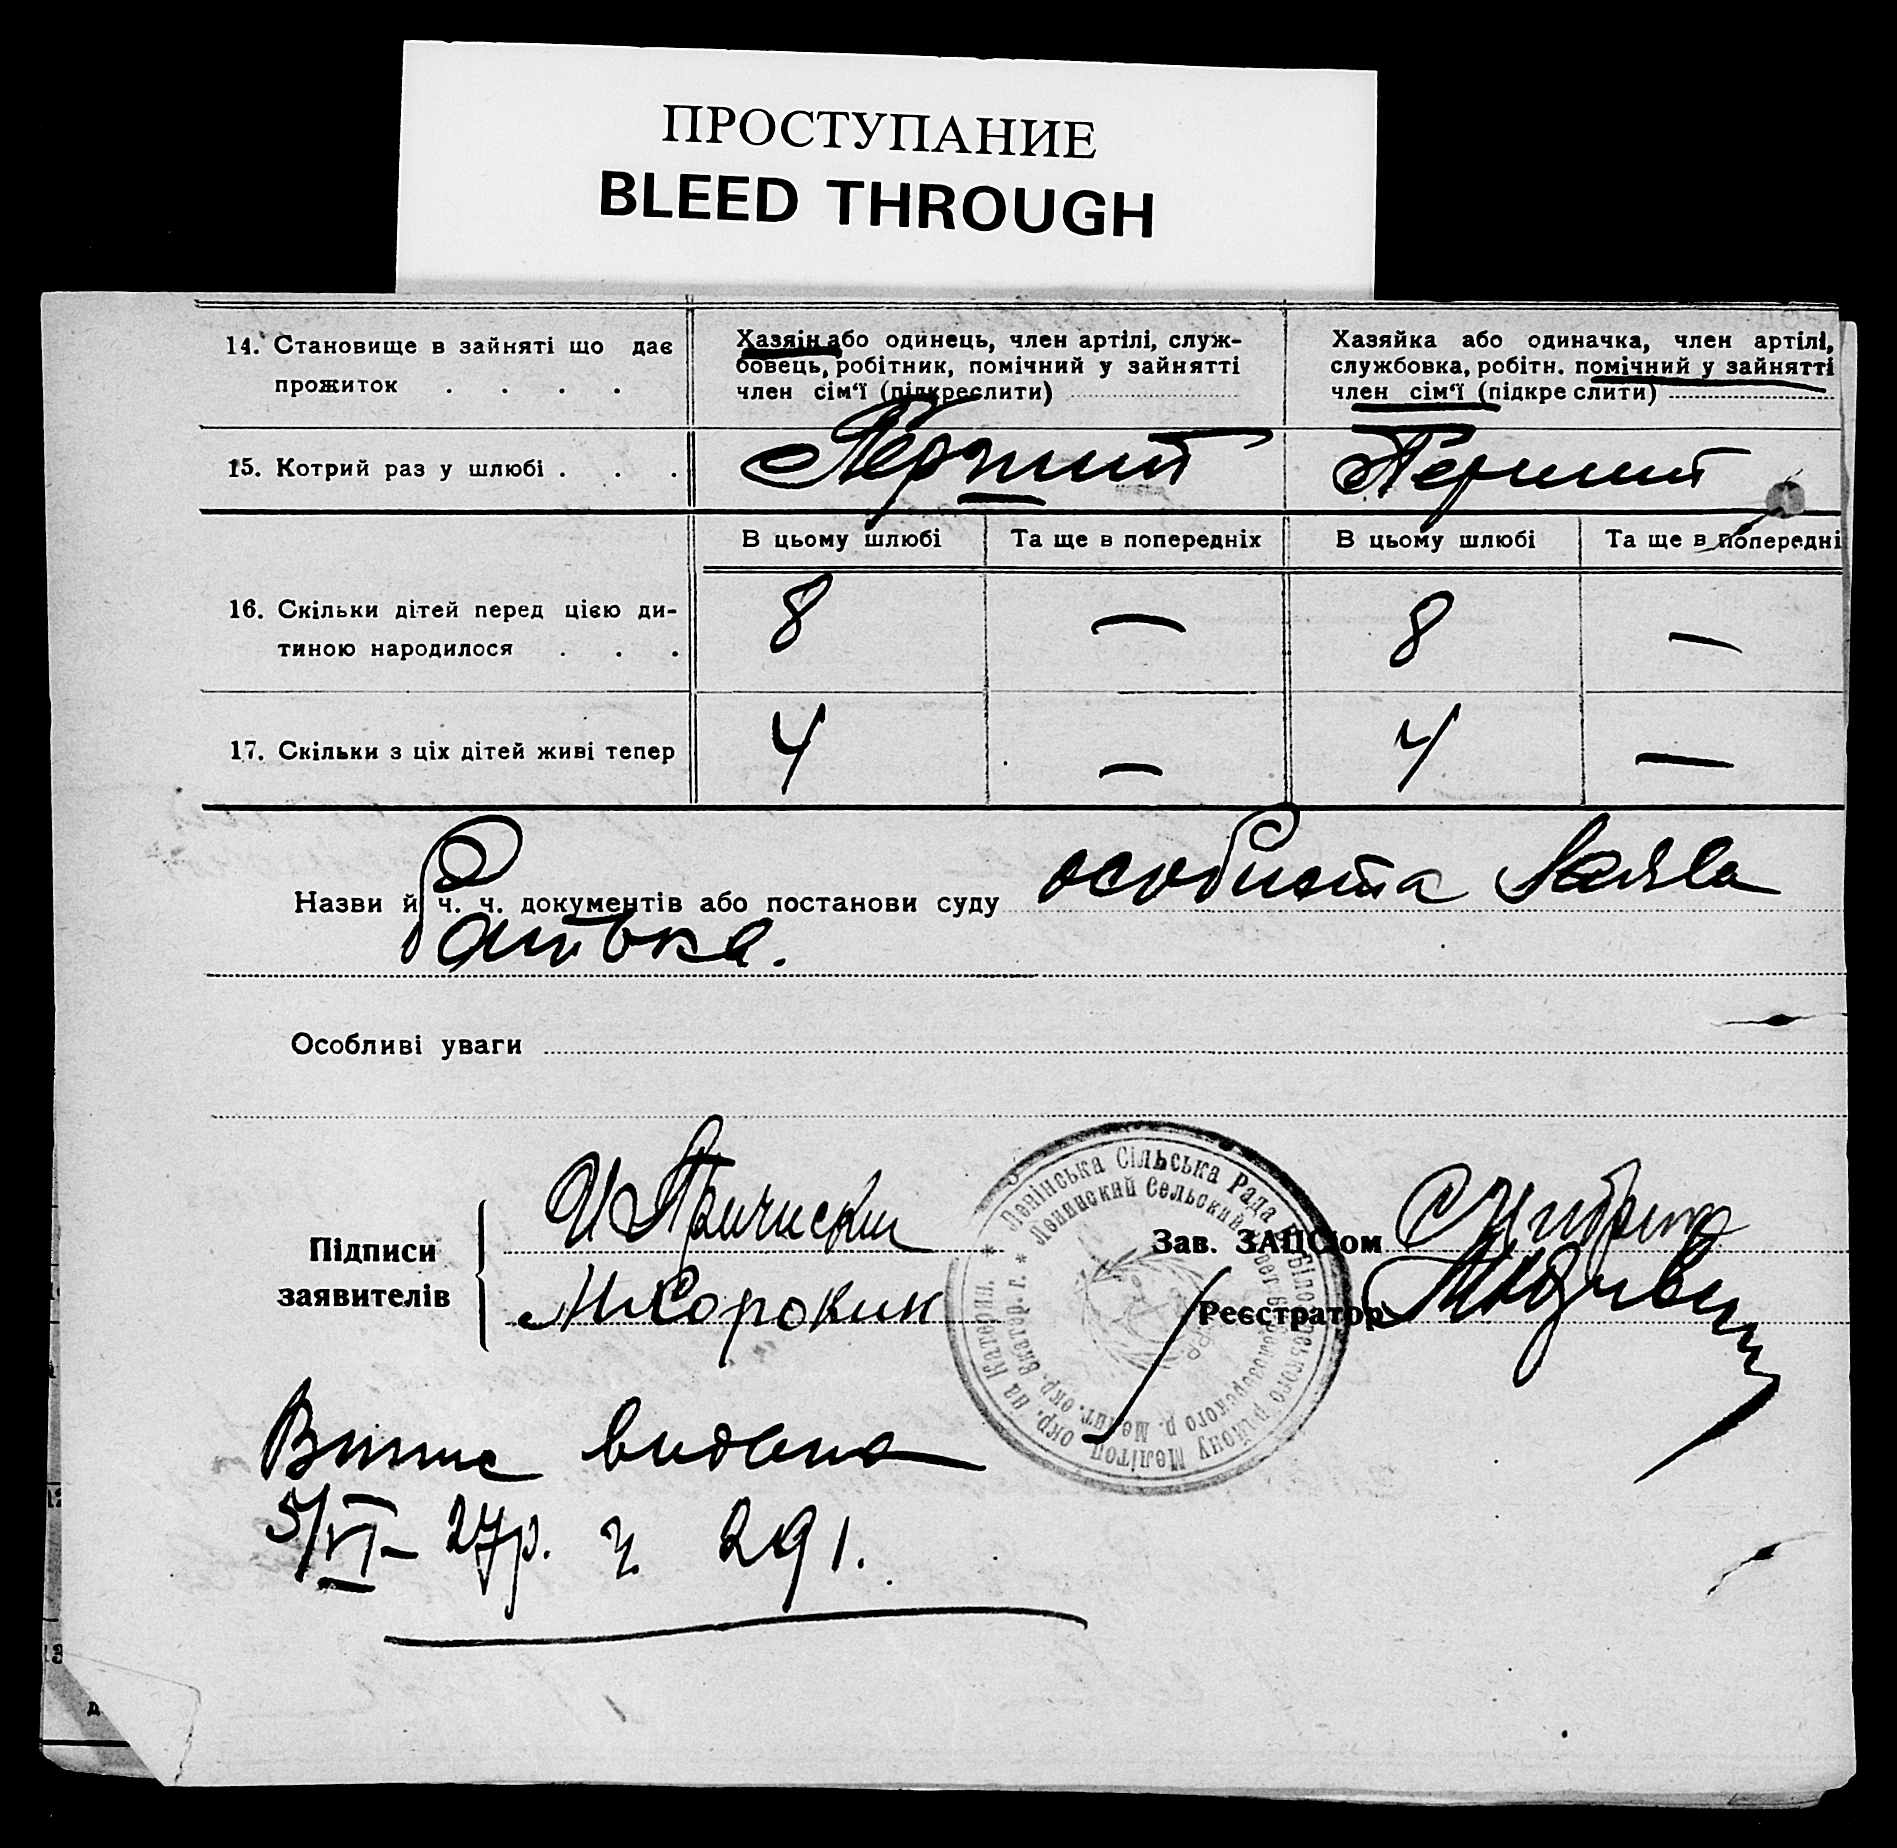 ПРОСТУПАНИЕ
BLEED THROUGH
14. Становище в зайняті що дає
прожиток . . . .
Хазяін або одинець, член артілі, служ-
бовець, робітник, помічний у зайнятті
член сім‘ї (підкреслити)
Хазяйка або одиначка, член артілі,
службовка, робітн. помічний у зайнятті
член сім‘ї (підкре слити)
15. Котрий раз у шлюбі . . .
Перший
Перший
В цьому шлюбі
Та ще в попередніх
В цьому шлюбі
Та ще в попередні
16. Скільки дітей перед цією ди-
тиною народилося . . .
8 — 8 —
17. Скільки з ціх дітей живі тепер
4 — 4 —
Назви й ч. ч. документів або постанови суду особиста заява
батька.
Особливі уваги
Підписи
заявителів
И
М Сорокин
Зав. ЗАГСом
Реєстратор
Ленінська Сільська Рада Білозерського району Мелітоп окр. на Катерин.
Ленинский Сельский р. Мелит. окр. Екатер. г.
Випис видано
5/VI – 27р. ч 291.
12
13